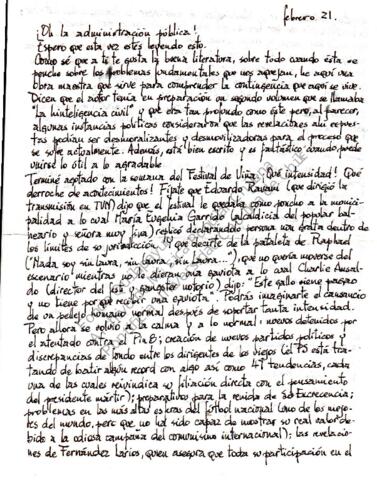 febrero 21.
¡Oh la administración pública!
Espero que esta vez estés leyendo esto.
Como sé que a ti te gusta la buena literatura, sobre todo cuando ésta se
poncho sobre los problemas fundamentales que nos aquejan, he aquí una
obra maestra que sirve para comprender la contingencia que aquí se vive.
Dicen que el autor tenía en preparación un segundo volumen que se llamaba
"La hinteligencia civil" y que era tan profundo como éste pero, al parecer,
algunas instancias políticas consideraron que las revelaciones allí expues-
tas podían ser desmoralizantes y desmovilizadoras para el proceso que
se vive actualmente. Además, está bien escrito y es fantástico cuando puede
unirse lo útil a lo agradable.
Terminé agotado con la semana del Festival de Viña. ¡Qué intensidad! ¡Qué
derroche de acontecimientos! Fíjate que Eduardo Ravani (que dirigió la
transmisión en TVN) dijo que el festival le quedaba como poncho a la munici-
palidad a lo cual María Eugenia Garrido (alcaldicia del popular bal-
neario y señora muy fina) replicó declarándolo persona non grata dentro de
los límites de su jurisdicción. Y qué decirte de la pataleta de Raphael
("Nada, soy sin Laura, sin Laura, sin Laura..."), que no quería moverse del
escenario mientras no le dieran una gaviota a lo cual Charlie Ausal-
do (director del fest. y gangster notorio) dijo: "Este gallo tiene pasajo
y no tiene por qué recibir una gaviota". Podrás imaginarte el cansancio
de un pellejo humano normal después de soportar tanta intensidad.
Pero ahora se volvió a la calma y a lo normal: nuevos detenidos por
el atentado contra Pin 8; creación de nuevos partidos políticos y
discrepancias de fondo entre los dirigentes de los viejos (el PS está tra-
tando de batir algún record con algo así como 47 tendencias, cada
una de las cuales reivindica su filiación directa con el pensamiento
del presidente mártir); preparativos para la venida de Su Excrecencia;
problemas en las más altas esferas del fútbol nacional (uno de los mejo-
res del mundo, pero que no ha sido capaz de mostrar su real valor de-
bido a la odiosa campaña del comunismo internacional); las revelacio-
nes de Fernández Larios, quien asegura que toda su participación en el